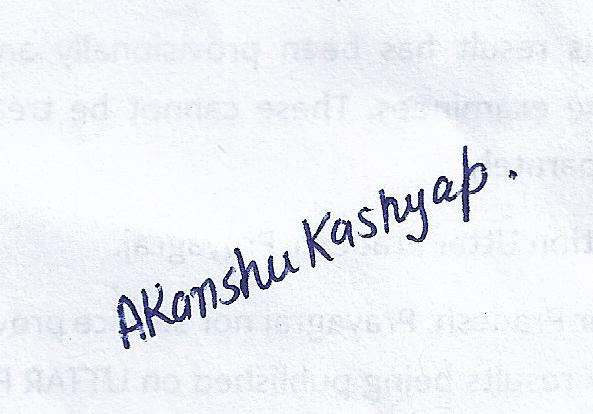 is result has been provisionally an
examinees. These cannot be trea
Akanshu Kashyap.
r Pradesh, Prayagraj nor
results being published on UTTAR P